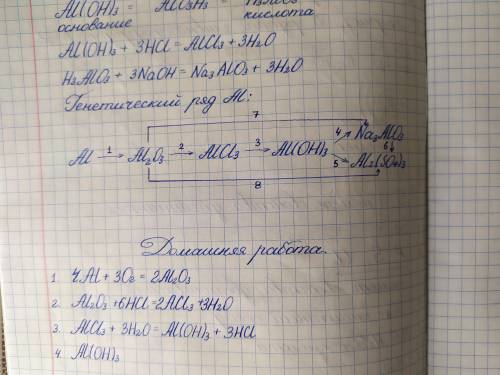 Al(OH)₃ = AlO₃H₃ = H₃AlO₃
основание кислота
Al(OH)₃ + 3HCl = AlCl₃ + 3H₂O
H₃AlO₃ + 3NaOH = Na₃AlO₃ + 3H₂O
Генетический ряд Al:
7
Al 1→ Al₂O₃ 2→ AlCl₃ 3→ Al(OH)₃ 4↗ Na₃AlO₃
6↓
5↘ Al₂(SO₄)₃
8
Домашняя работа.
1. 4Al + 3O₂ = 2Al₂O₃
2. Al₂O₃ + 6HCl = 2AlCl₃ + 3H₂O
3. AlCl₃ + 3H₂O = Al(OH)₃ + 3HCl
4. Al(OH)₃